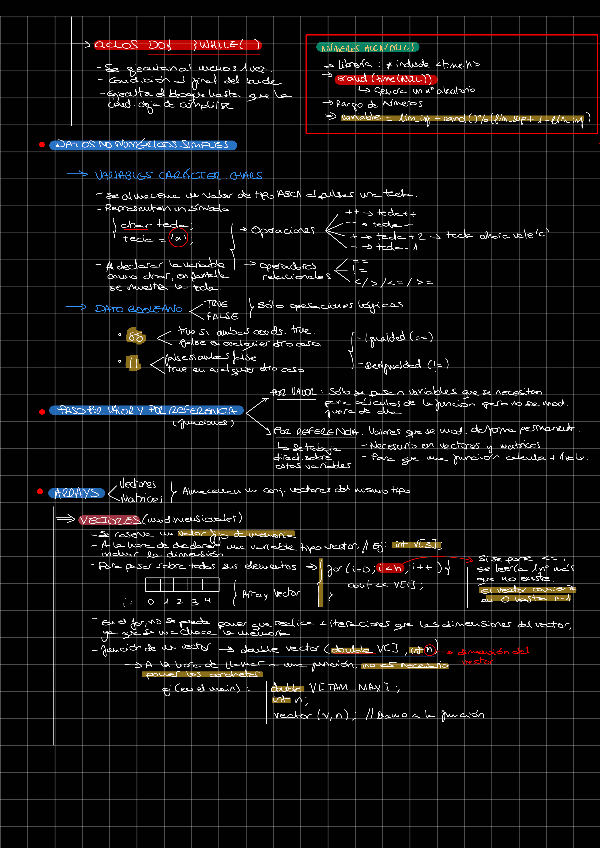 → CICLOS DO{ }WHILE( )
- Se ejecutan al menos 1 vez.
- Condición al final del bucle
- Ejecuta el bloque hasta que la
cond. deja de cumplirse
NÚMEROS ALEATORIOS
→ Librería: # include <time.h>
→ srand(time(NULL))
↳ Genera un nº aleatorio
→ Rango de números
→ variable = lim_inf + rand()%(lim_sup+1-lim_inf)
• DATOS NO NUMÉRICOS SIMPLES
→ VARIABLES CARÁCTER. CHARS
- Se almacena un valor de tipo ASCII al pulsar una tecla.
- Representan un símbolo
char tecla;
tecla = 'a';
→ Operaciones
++ → tecla++
-- → tecla--
+ → tecla + 2 → tecla ahora vale 'c'
- → tecla - 1
- Al declarar la variable
como char, en pantalla
se muestra la tecla
→ Operadores
relacionales
! =
= =
< / > / <= / >=
→ DATO BOOLEANO
TRUE
FALSE
Sólo operaciones lógicas
• &&
true si ambas conds. true.
false en cualquier otro caso
• ||
false si ambas false
true en cualquier otro caso
- Igualdad (==)
- Desigualdad (!=)
• PASO POR VALOR Y POR REFERENCIA
(funciones)
POR VALOR: Sólo se pasan variables que se necesitan
para cálculos de la función pero no se mod.
fuera de ella.
POR REFERENCIA. Valores que se mod. de forma permanente.
↳ Se trabaja
direct. sobre
estas variables
- Necesario en vectores y matrices
- Para que una función calcule +1 valor.
• ARRAYS
Vectores
Matrices
Almacenan un conj. vectores del mismo tipo
⇒ VECTORES (unidimensionales)
- Se reserva un valor fijo de memoria.
- A la hora de declarar una variable tipo vector, // Ej: int V[5];
indicar la dimensión
- Para pasar sobre todos sus elementos →
for (i=0; i<n; i++) {
cout << V[i];
}
Si se pone <=,
se leería 1 nº más
que no existe.
El vector comienza
en 0 hasta n-1
Array vector
i: 0 1 2 3 4
- En el for, no se puede poner que realice + iteraciones que las dimensiones del vector,
ya que se machaca la memoria
- función de un vector → double vector (double V[], int n) → dimensión del
vector
→ A la hora de llamar a una función, no es necesario
poner los corchetes
ej (en el main):
double V[TAM_MAX];
int n;
vector (v, n); // Llamo a la función